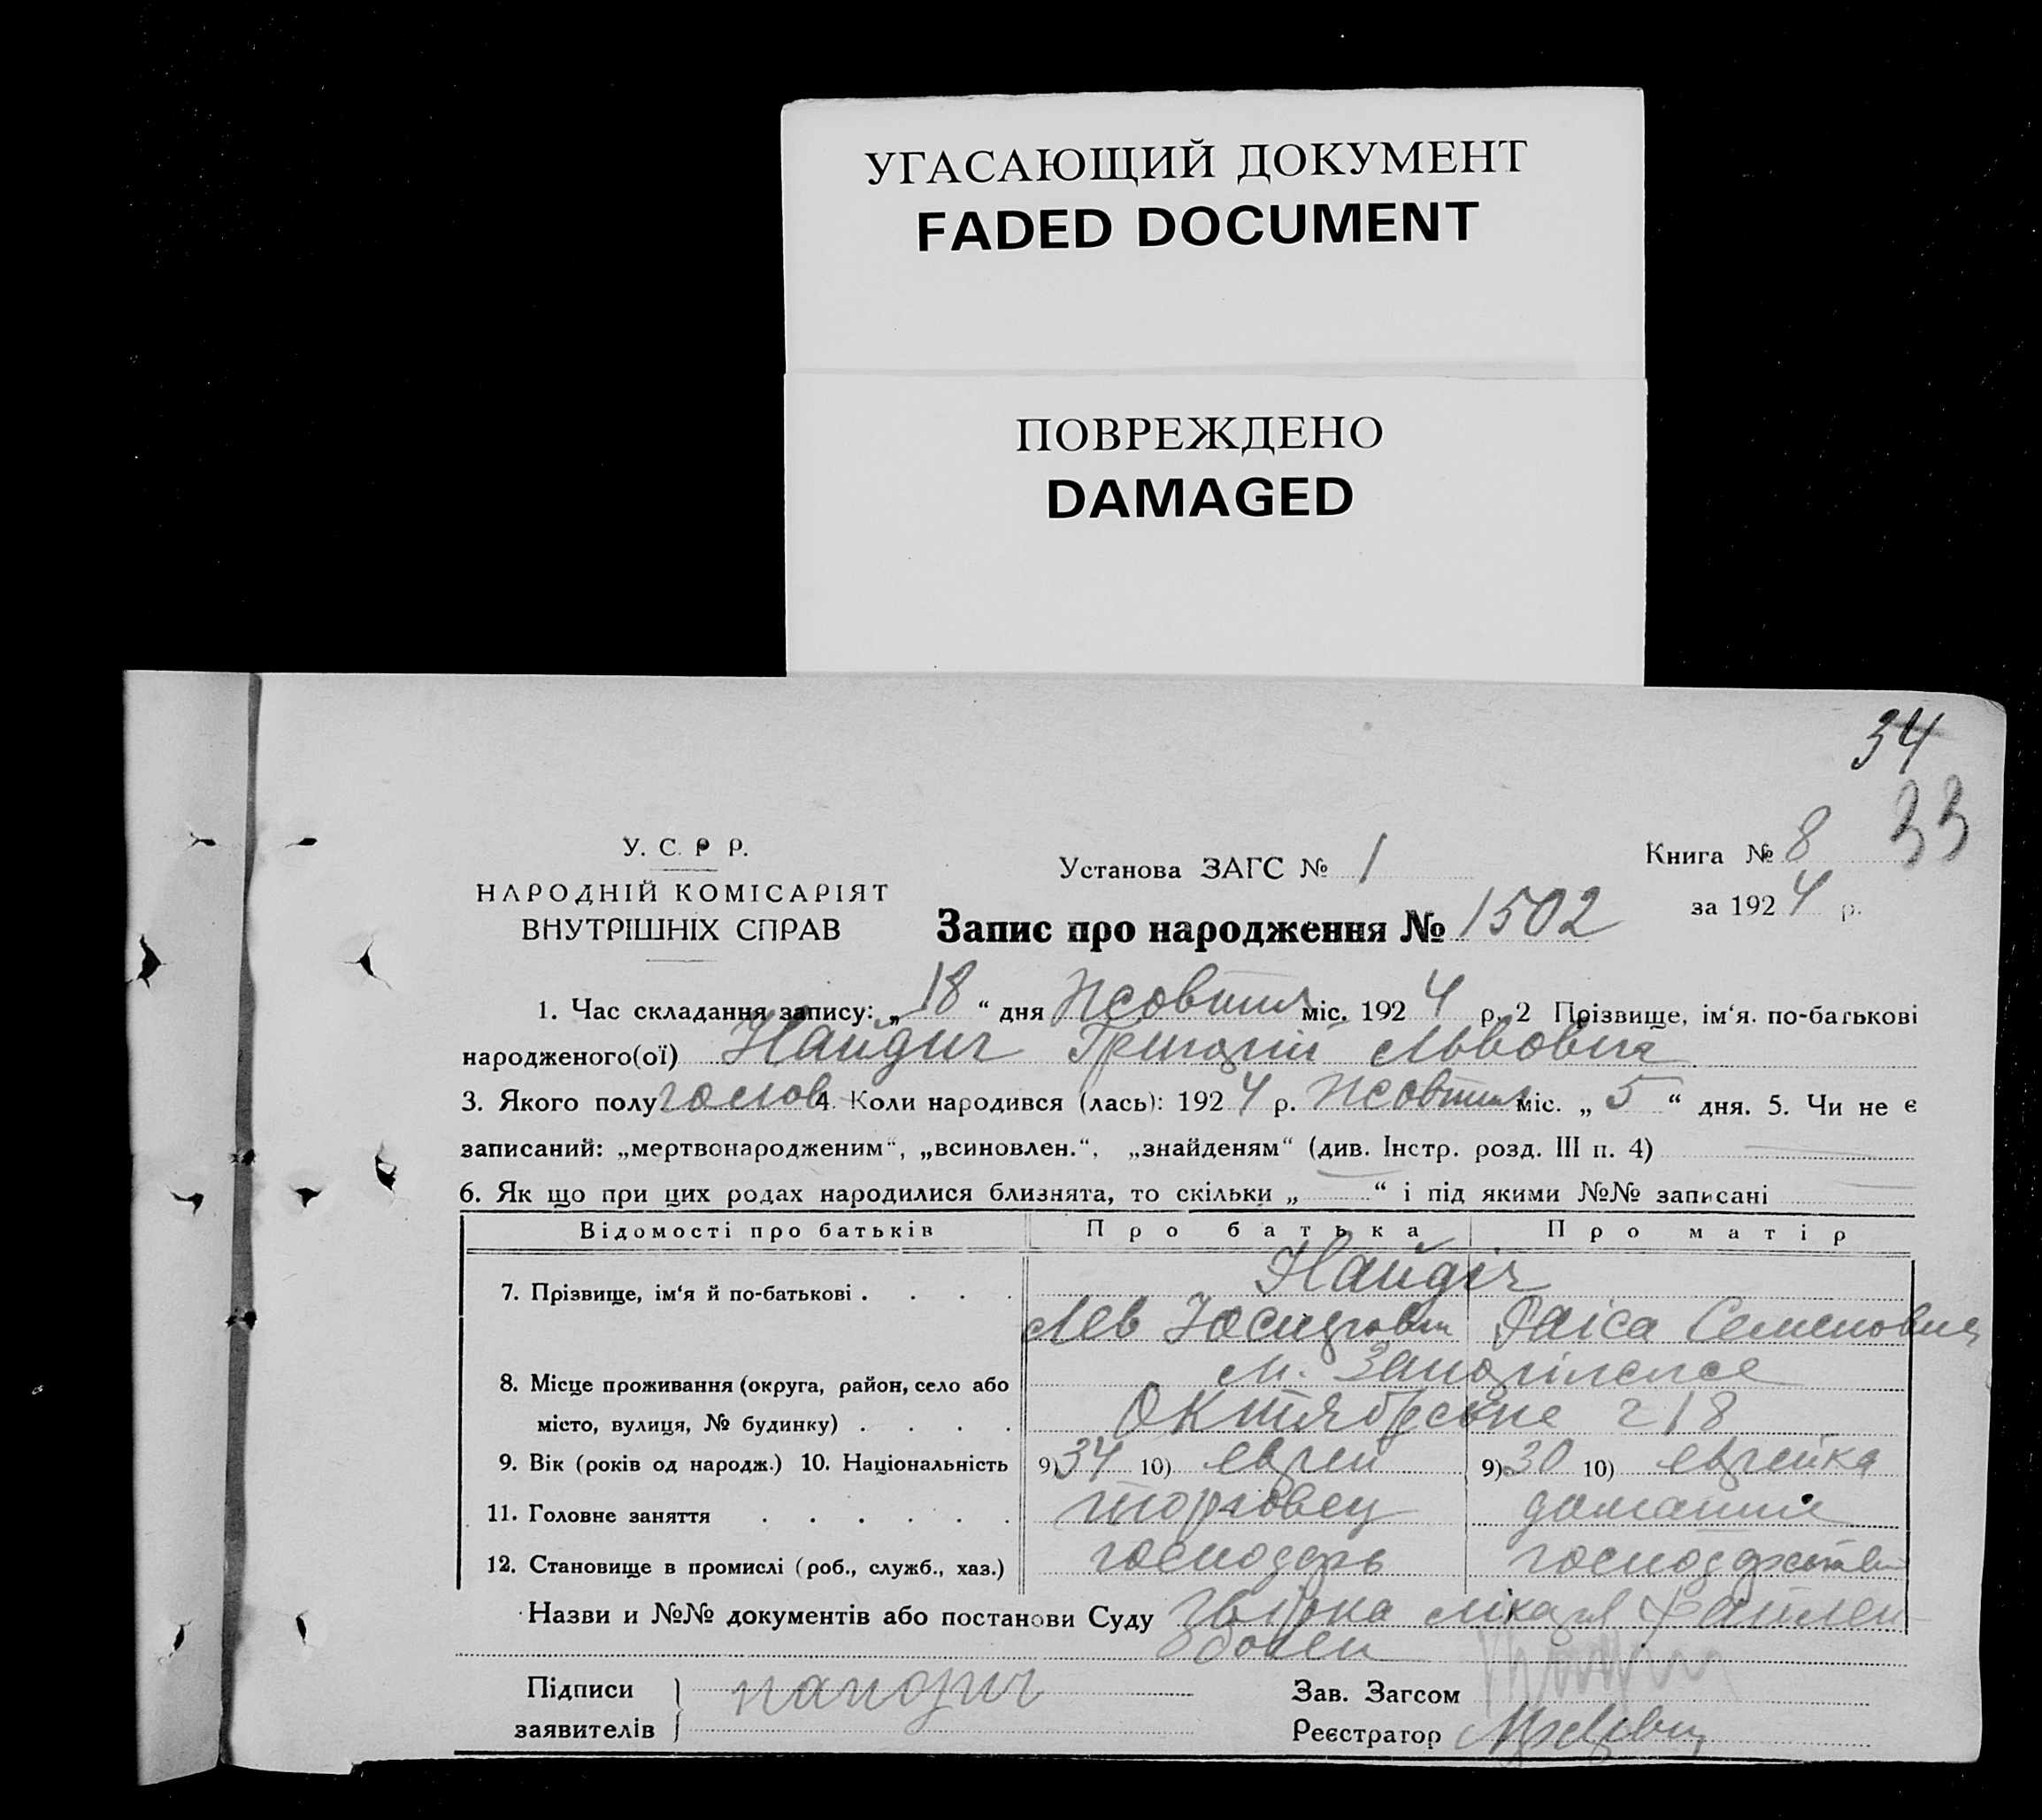 УГАСАЮЩИЙ ДОКУМЕНТ
FADED DOCUMENT
ПОВРЕЖДЕНО
DAMAGED
34
33
У. С. Р Р.
НАРОДНІЙ КОМІСАРІЯТ
ВНУТРІШНІХ СПРАВ
Установа ЗАГС № 1
Книга № 8
за 1924 р.
Запис про народження № 1502
1. Час складання запису: „18“ дня Жовтня міс. 1924 р. 2 Прізвище, ім‘я. по-батькові
народженого(ої) Найдич Григорій Львович
3. Якого полу 4. Коли народився (лась): 1924 р. Жовтня міс. „5“ дня. 5. Чи не є
записаний: „мертвонародженим“, „всиновлен.“, „знайденям“ (див. Інстр. розд. III п. 4)
6. Як що при цих родах народилися близнята, то скільки „ “ і під якими №№ записані
Відомості про батьків Про батька Про матір
7. Прізвище, ім‘я й по-батькові . . . . Найдіч
Лев Раіса Семеновна
8. Місце проживання (округа, район, село або м. Запоріжжє
місто, вулиця, № будинку) . . . . 218
9. Вік (років од народж.) 10. Національність 9) 34 10) еврей 9) 30 10) еврейка
11. Головне заняття . . . . . . торговец домашнє
12. Становище в промислі (роб., служб., хаз.) господарь
Назви и №№ документів або постанови Суду лікаря
Підписи
заявителів
Найдич
Зав. Загсом
Реєстратор